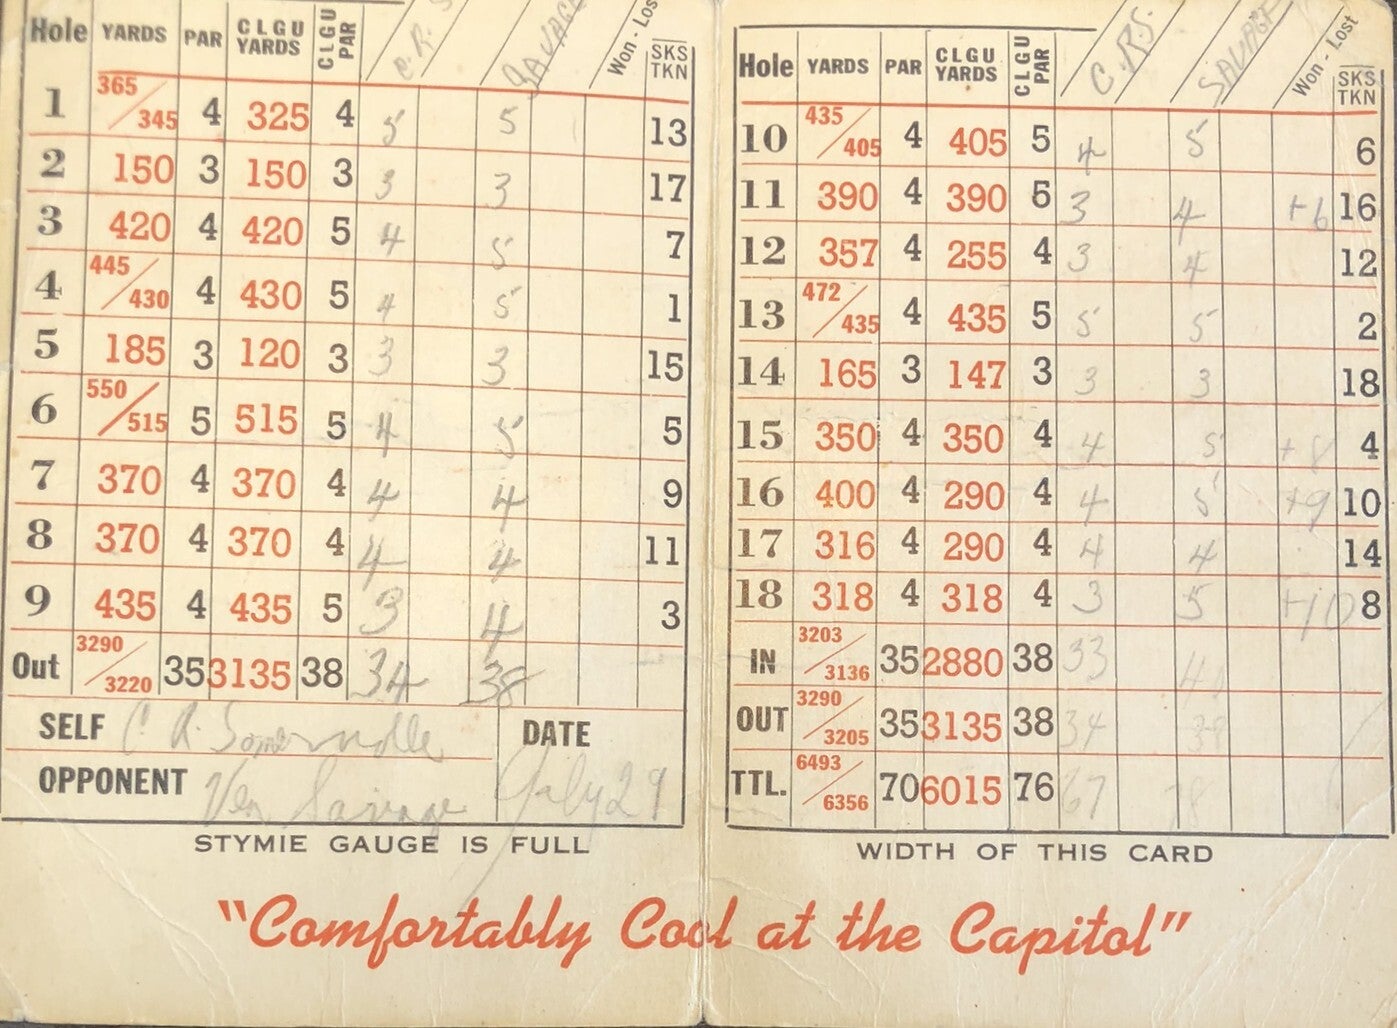 Hole YARDS PAR CLGU YARDS CLGU PAR C.R.S SAVAGE Won - Lost SKS TKN
1 365/345 4 325 4 5 5 13
2 150 3 150 3 3 3 17
3 420 4 420 5 4 5 7
4 445/430 4 430 5 4 5 1
5 185 3 120 3 3 3 15
6 550/515 5 515 5 4 5 5
7 370 4 370 4 4 4 9
8 370 4 370 4 4 4 11
9 435 4 435 5 3 4 3
Out 3290/3220 35 3135 38 34 38
SELF C R. Somerville DATE
OPPONENT Ven Savage July 29
STYMIE GAUGE IS FULL
Hole YARDS PAR CLGU YARDS CLGU PAR C.R.S. SAVAGE Won - Lost SKS TKN
10 435/405 4 405 5 4 5 6
11 390 4 390 5 3 4 +6 16
12 357 4 255 4 3 4 12
13 472/435 4 435 5 5 5 2
14 165 3 147 3 3 3 18
15 350 4 350 4 4 5 +8 4
16 400 4 290 4 4 5 +9 10
17 316 4 290 4 4 4 14
18 318 4 318 4 3 5 +10 8
IN 3203/3136 35 2880 38 33 40
OUT 3290/3205 35 3135 38 34 38
TTL. 6493/6356 70 6015 76 67 78
WIDTH OF THIS CARD
"Comfortably Cool at the Capitol"